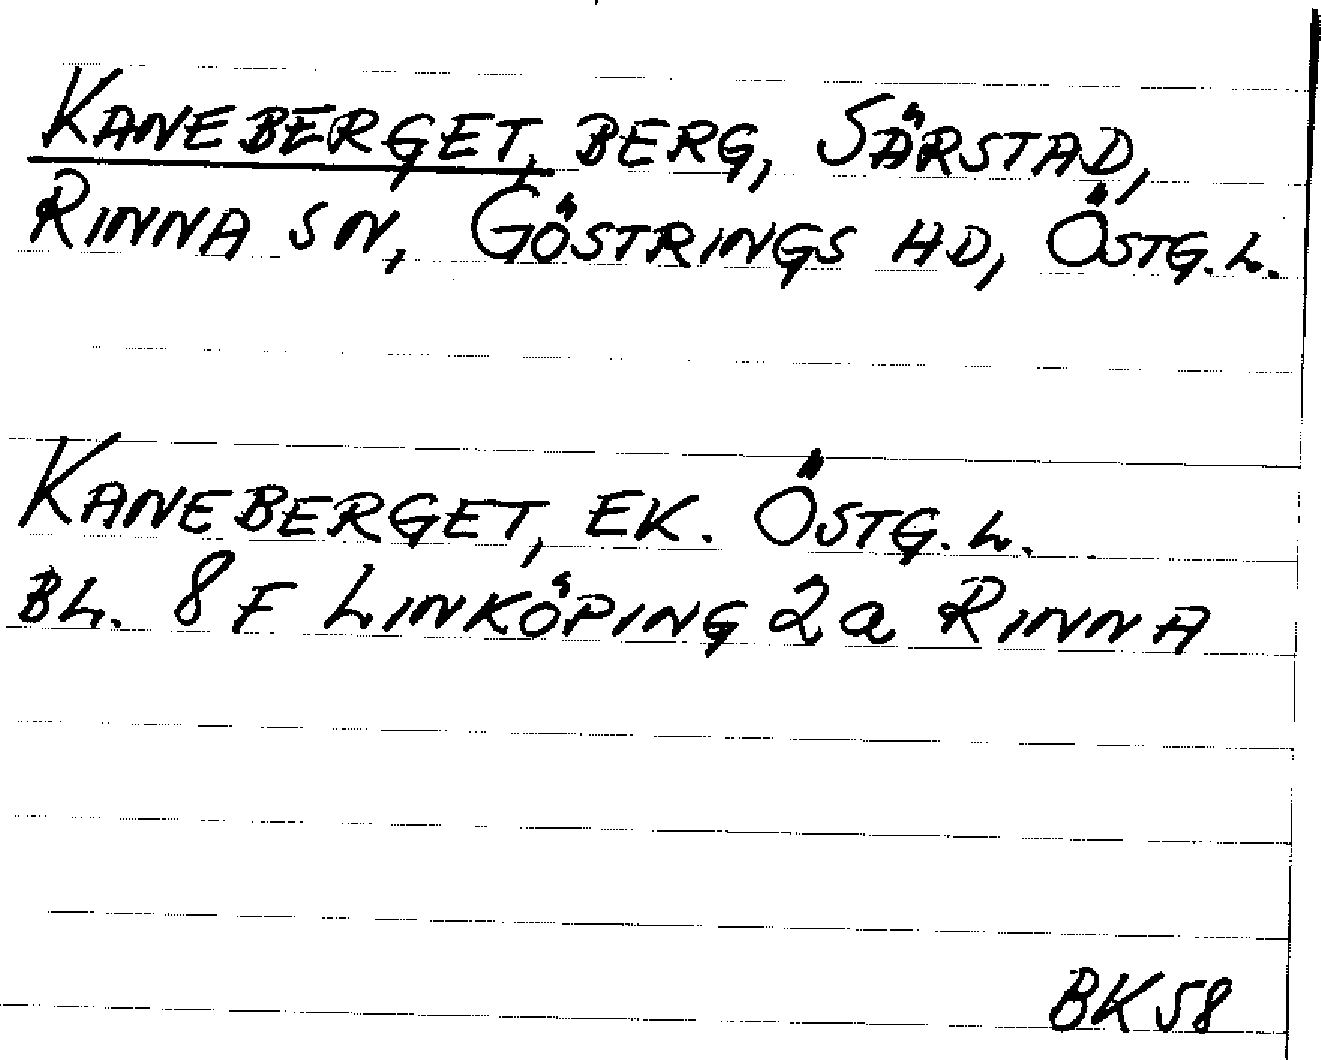 KANEBERGET, BERG, SÄRSTAD,
RINNA SN, GÖSTRINGS HD, ÖSTG.L.
KANEBERGET, EK. ÖSTG.L.
BL. 8F LINKÖPING 2a RINNA
BK58